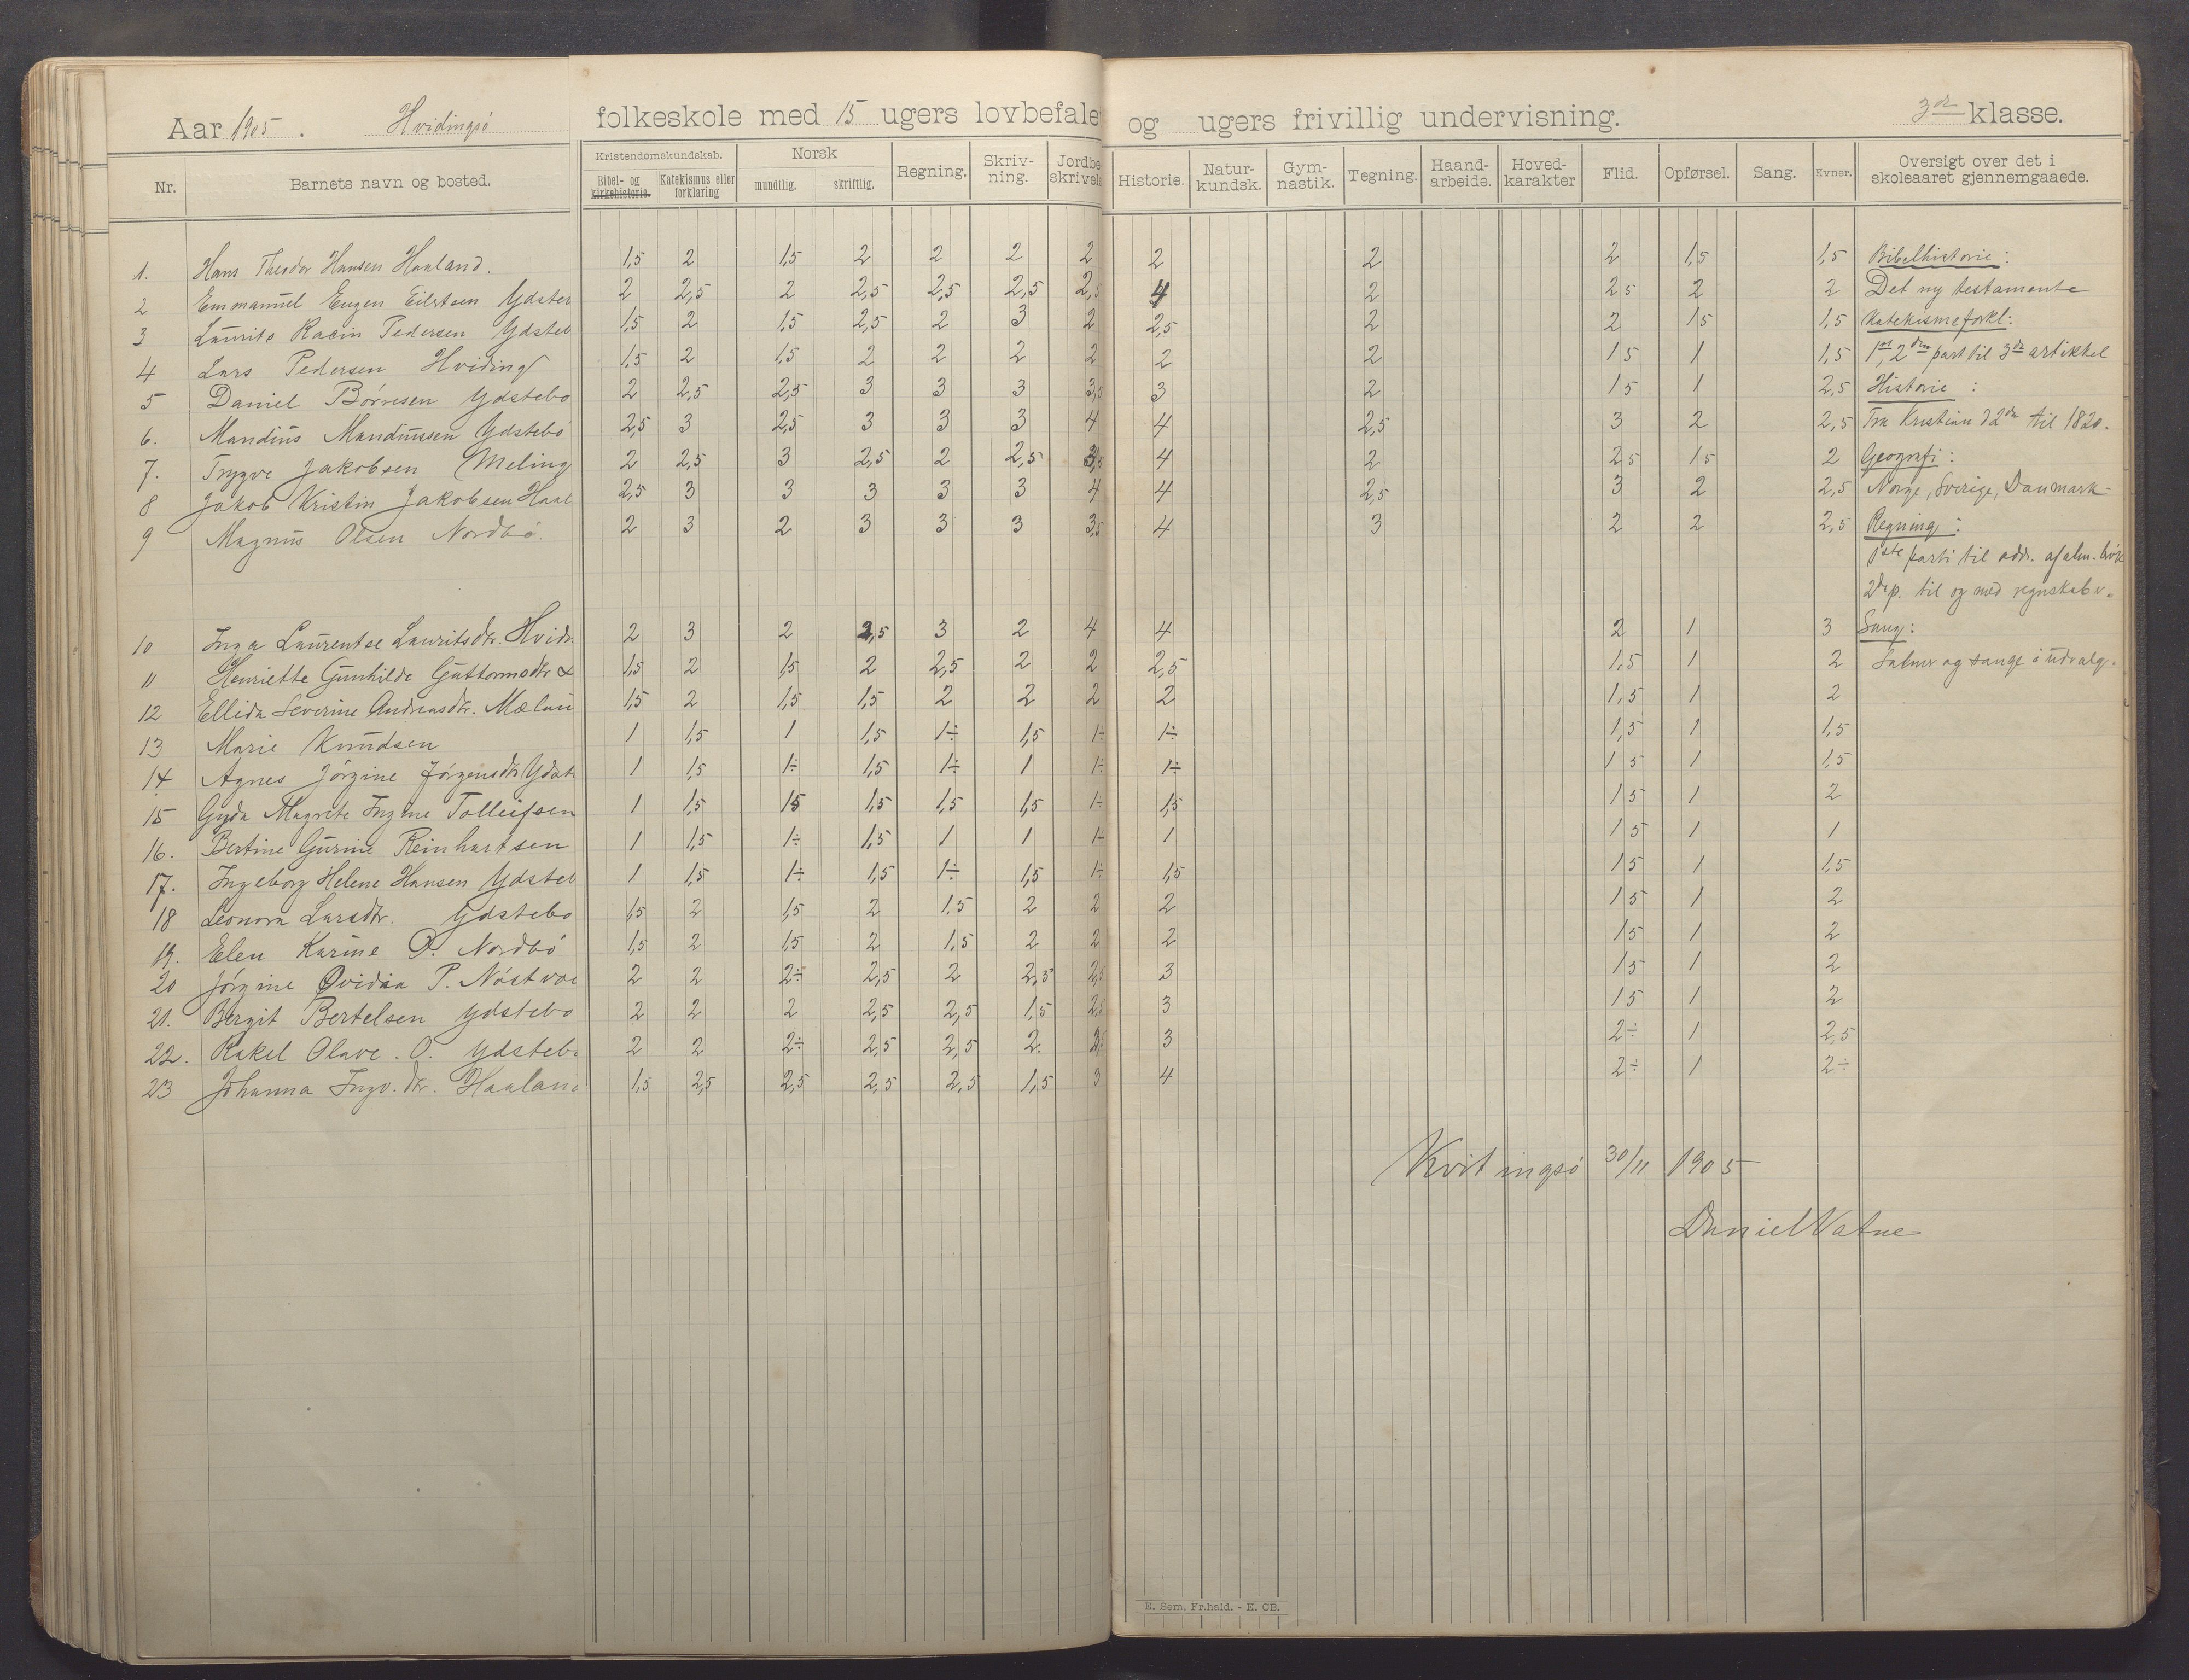 Aar 1905. Hvidingsö folkeskole med 15 ugers lovbefale og ugers frivillig undervisning. 3die klasse.
Nr. Barnets navn og bosted. Kristendomskundskab. Bibel- og kirkehistorie. Katekismus eller forklaring Norsk mundtlig. skriftlig. Regning. Skriv-ning. Jordbe skrivels Historie. Natur-kundsk. Gym-nastik. Tegning. Haand-arbeide. Hoved-karakter Flid. Opførsel. Sang. Evner. Oversigt over det i skoleaaret gjennemgaaede.
1. Hans Theodor Hansen Haaland. 1,5 2 1,5 2 2 2 2 2 2 2 1,5 1,5 Bibelhistorie:
2 Emmanuel Eugen Eilertsen Ydster 2 2,5 2 2,5 2,5 2,5 2,5 4 2 2 5 2 2 Det ny testamente
3 Laurits Racin Pedersen Ydsteb 1,5 2 1,5 2,5 2 3 2 2,5 2 2 1 5 1,5 Katekismeforkl:
4 Lars Pedersen Hviding 1,5 2 1,5 2 2 2 2 2 2 1 5 1 1,5 1ste, 2den part til 3die artikkel
5 Daniel Börresen Ydstebo 2 2,5 2,5 3 3 3 3,5 3 2 1 5 1 2,5 Historie:
6. Mandius Mandiussen Ydstebö 2,5 3 2,5 3 3 3 4 4 2,5 3 2 2,5 Fra Kristian d 2den til 1820.
7. Trygve Jakobsen Meling 2 2,5 3 2,5 2 2,5 3,5 4 2 2 5 1 5 2 Geografi:
8 Jakob Kristin Jakobsen Haal 2,5 3 3 3 3 3 4 4 2,5 3 2 2,5 Norge, Sverige, Danmark
9 Magnus Olsen Nordbö. 2 3 2 3 3 3 3,5 4 3 2 2 2,5 Regning:
1ste parti til add. af alm. brök
2det p. til og med regnskabv.
10 Inga Laurentse Lauritsdtr. Hvidi 2 3 2 2,5 3 2 4 4 2 1 3 Sang:
11 Henriette Gunhilde Guttormsdtr 1,5 2 1,5 2 2,5 2 2 2,5 1,5 1 2 Salmer og sange i udvalg.
12 Ellida Severine Andreasdtr. Mælan 1,5 2 1,5 1,5 2 2 2 2 1,5 1 2
13 Marie Knudsen 1 1,5 1 1,5 1÷ 1,5 1÷ 1÷ 1,5 1 1,5
14 Agnes Jörgine Jörgensdtr Ydste 1 1,5 1÷ 1,5 1÷ 1 1÷ 1÷ 1 5 1 1,5
15 Gyda Magrete Ingine Tolleifsen 1 1,5 1 5 1,5 1,5 1,5 1÷ 1,5 1 5 1 2
16. Bertine Gurine Reinhartsen 1 1,5 1÷ 1,5 1 1 1÷ 1 1 5 1 1
17. Ingeborg Helene Hansen Ydsteb 1 1,5 1÷ 1,5 1÷ 1,5 1÷ 1,5 1 5 1 1,5
18 Leonora Larsdtr. Ydstebo 1,5 2 1,5 2 1,5 2 2 2 1 5 1 2
19. Elen Karine O. Nordbö 1,5 2 1,5 2 1,5 2 2 2 1 5 1 2
20 Jörgine Ovidia P. Nöstvoe 2 2 2÷ 2,5 2 2,5 2,5 3 1 5 1 2
21. Bergit Bertelsen Ydstebo 2 2 2 2,5 2,5 1,5 2,5 3 1 5 1 2
22. Rakel Olave. O. Ydstebo 2 2 2÷ 2,5 2,5 2. 3 2÷ 1 2,5
23 Johanna Ingv. dtr. Haaland 1,5 2,5 2,5 2,5 2,5 1,5 3 4 2÷ 1 2÷
Kvitingsö 30/11 1905
Daniel Vatne
E. Sem. Fr.hald. - E. CB.